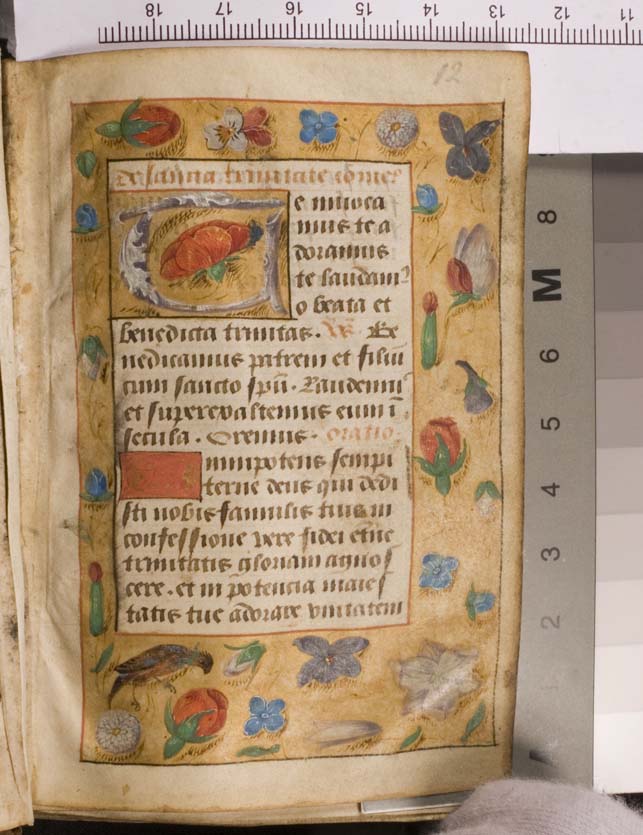 12
De sancta trinitate
Te invoca
mus te a
doramus
te laudam⁹
o beata et
benedicta trinitas. Be
nedicamus patrem et filiū
cum sancto spū. Laudem⁹
et superexaltemus eum ī
secula. Oremus. Oratio.
Omnipotens sempi
terne deus qui dedi
sti nobis famulis tuis in
confessione vere fidei etne
trinitatis gloriam agnos
cere. et in potencia maies
tatis tue adorare unitatem
18 17 16 15 14 13 12 11
8
M
6
5
4
3
2